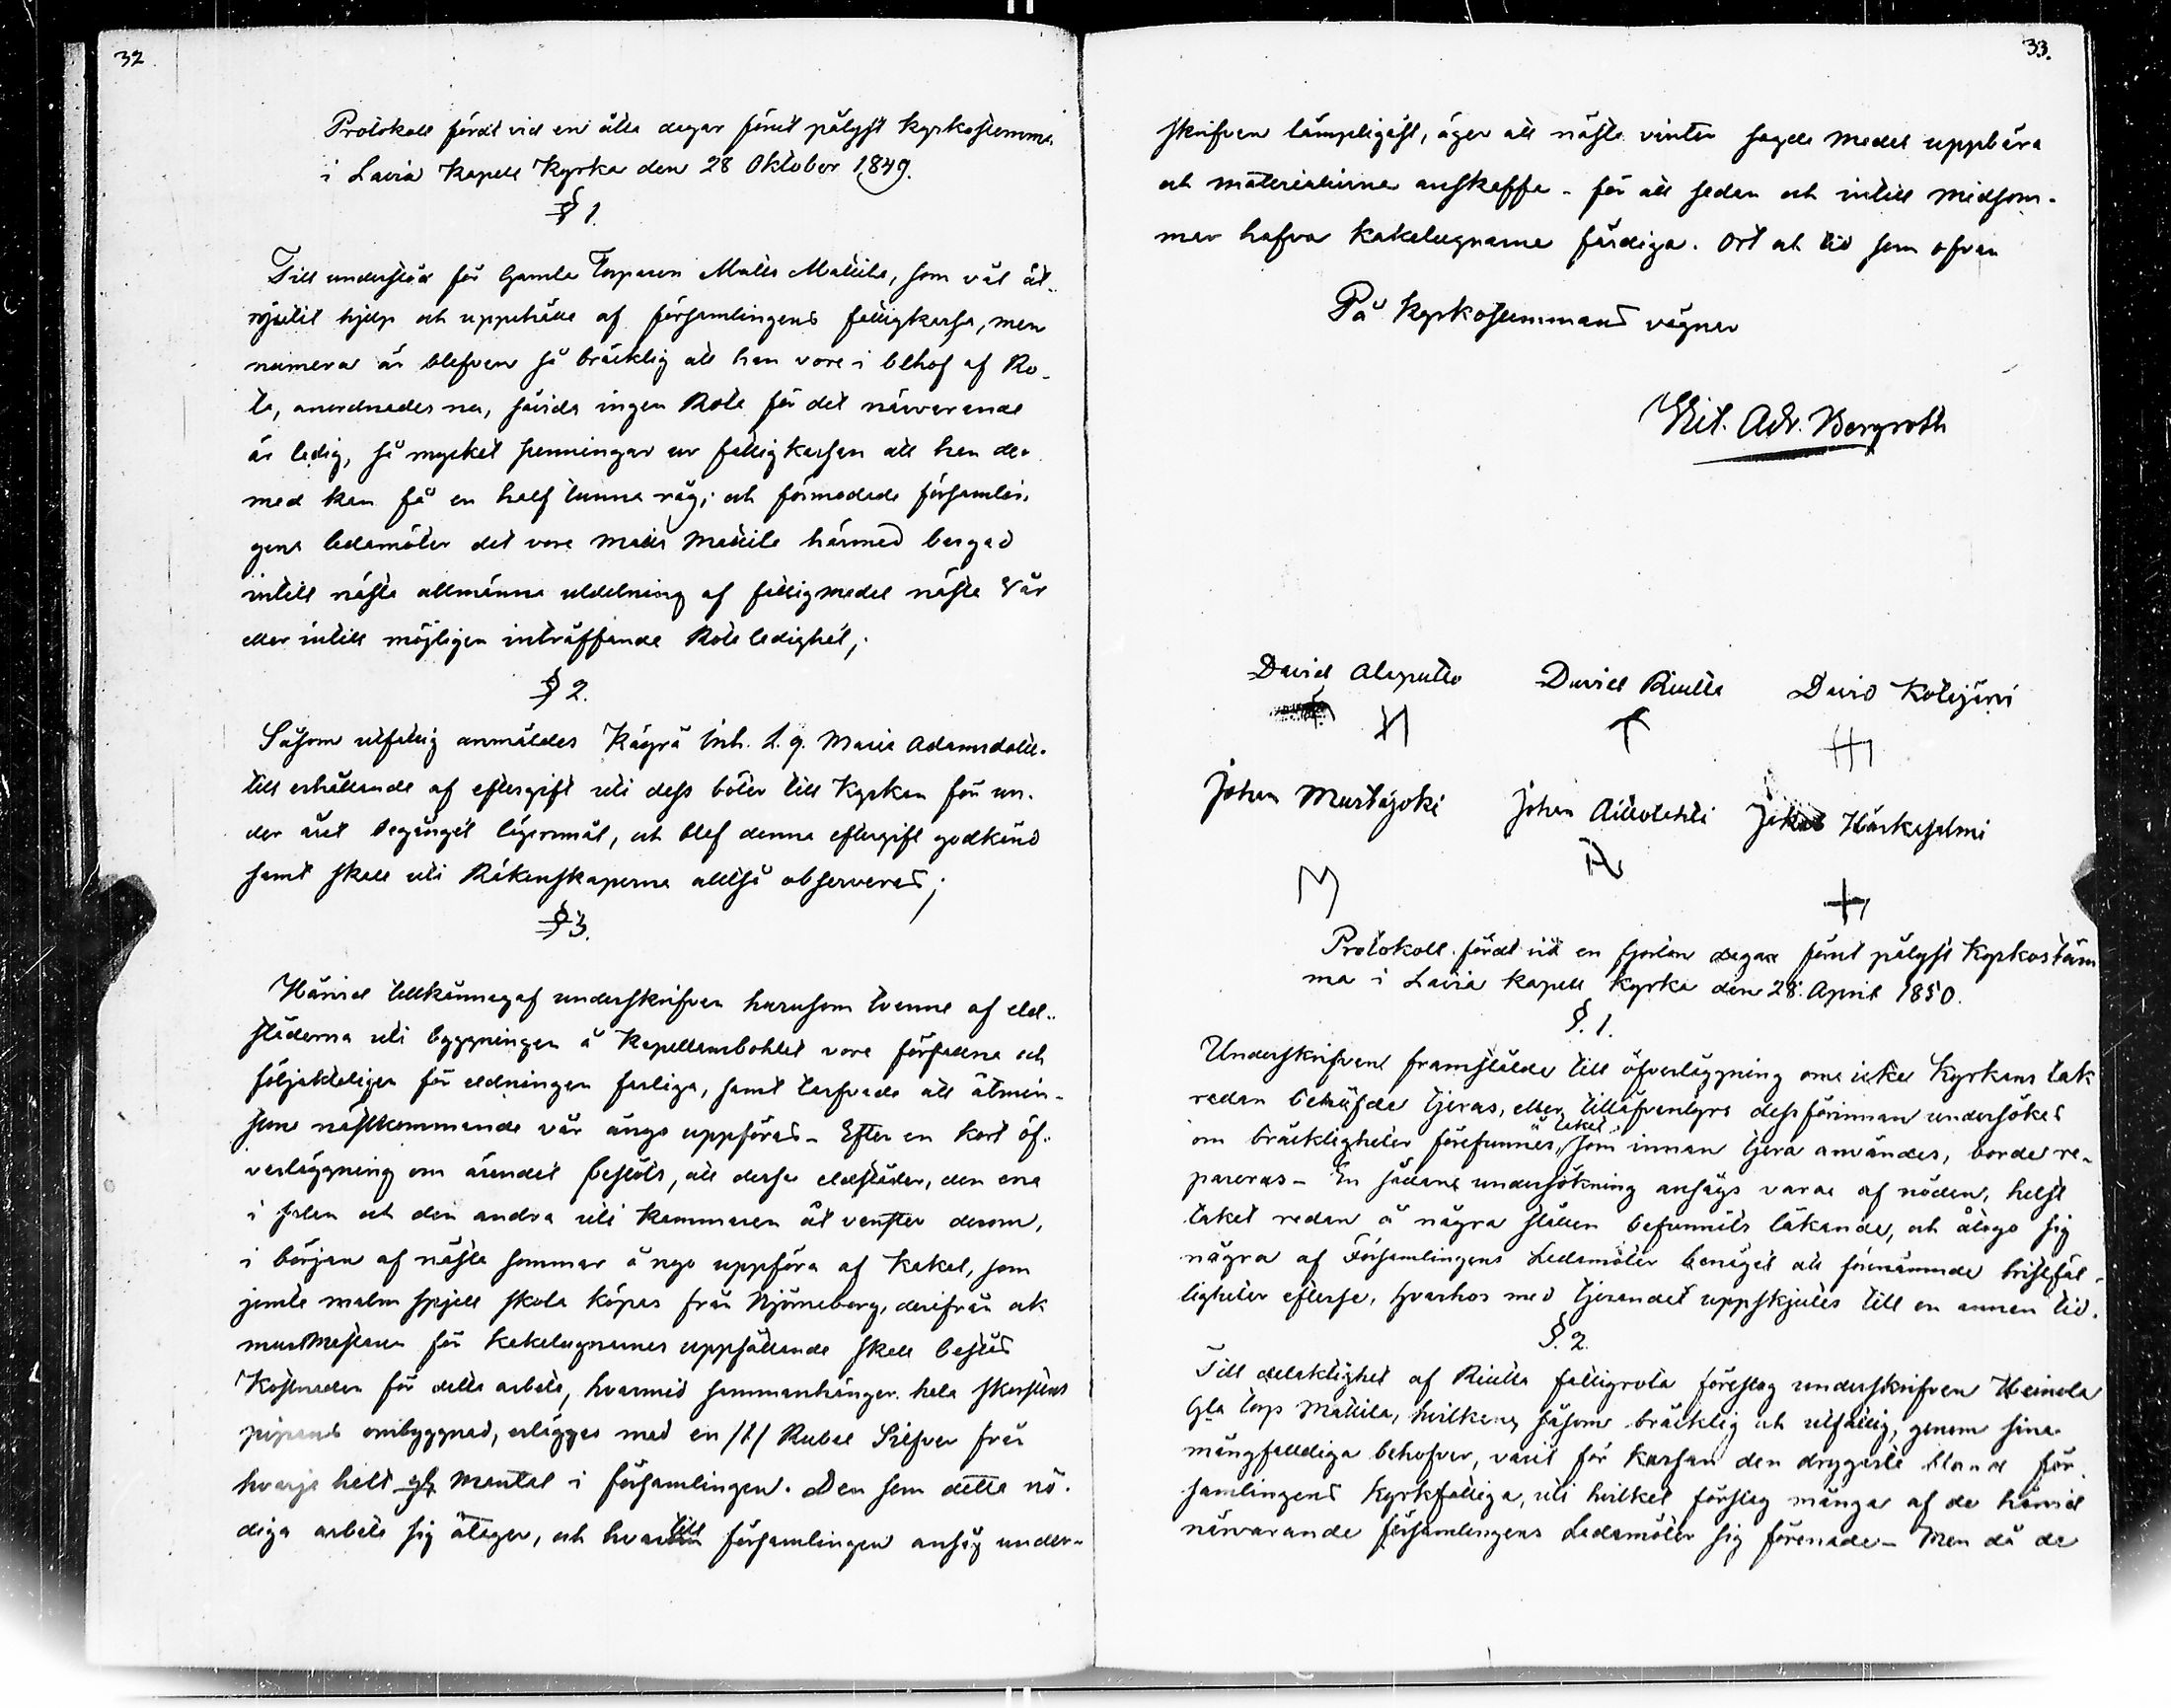 32
Protokoll fördt vid en åtta dagar förut pålyst Kyrkostemma
i Lavia Kapell Kyrka den 28 Oktober 1849.
§ 1.
Till understöd för Gamla Torparen Matts Mattila, som väl åt-
njutit hjelp och uppehälle af församlingens fattigkassa, men
numera är blefven så bräcklig att han vore i behof af Ro-
te, anordnades nu, såvida ingen Rote för det närvarande
är ledig, så mycket penningar ur fattigkassan att han der
med kan få en half tunna råg; och förmodade församlin
gens ledamöter det vore Matts Mattila härmed bergad
intill nästa allmänna utdelning af fattigmedel nästa Vår
eller intill möjligen inträffande Rote ledighet;
§ 2.
Såsom utfattig anmäldes Kägrä Inh. L. q. Maria Adamsdotter
till erhållande af eftergift uti dess böter till Kyrkan för un-
der året begånget lägersmål, och blef denna eftergift godkänd
samt skall uti Räkenskaperna alltså observeras;
§ 3.
Härvid tillkännagaf underskrifven hurusom tvenne af eld-
städerna uti byggningen å Kapellansbohlet vore förfallna och
följaktligen för eldningen farliga, samt tarfvade att åtmin-
stone nästkommande vår ånyo uppföras - Efter en kort öf-
verläggning om ärendet beslöts, att dessa eldstäder, den ena
i salen och den andra uti kammaren åt venster derom,
i början af nästa sommar å nyo uppföra af Kakel, som
jemte malm spjell skola köpas från Björneborg, derifrån ock
murmästaren för kakelugnarnes uppsättande skall bestås
Kostnaden för detta arbete, hvarmed sammanhänger hela skorstens
pipans ombyggnad, erlägges med en /1/ Rubel Silfver från
hvarje helt mantal i församlingen. Den som detta nö-
diga arbete sig åtager, och hvartill församlingen ansåg under-
33.
skrifven lämpligast, äger att nästa vinter sagde medel uppbära
och materialierna anskaffa - för att sedan och intill midsom-
mar hafva Kakelugnarne färdiga. Ort och tid som ofvan
På Kyrkostemmans vägnar
Vit. Adr. Bergroth
David Alaputto David Riutta David Kotijärvi
Johan Mustajoki Johan Aittolahti Jakob Härkasalmi
Protokoll fördt vid en fjorton dagar förut pålyst Kyrkostäm
ma i Lavia Kapell Kyrka den 28. April 1850.
§. 1.
Underskrifven framstälde till öfverläggning om icke Kyrkans tak
redan behöfde tjäras, eller tilläfventyrs dessförinnan undersökas
å taket
om bräckligheter förefunnes, som innan tjära användes, borde re-
pareras - En sådan undersökning ansågs vara af nöden, helst
taket redan å några ställen befunnits läkande, och åtogo sig
några af Församlingens Ledamöter benäget att förenämnde bristfäl-
ligheter efterse, hvarhos med tjärandet uppskjutes till en annan tid.
§. 2.
Till delaktighet af Riutta fattigrota föreslog underskrifven Heinola
Gla torp Mattila, hvilken, såsom bräcklig och utfattig, genom sina
mångfalldiga behofver, varit för Kassan den drygaste bland för
samlingens Kyrkfattiga, uti hvilket förslag många af de härvid
närvarande församlingens Ledamöter sig förenade - Men då de